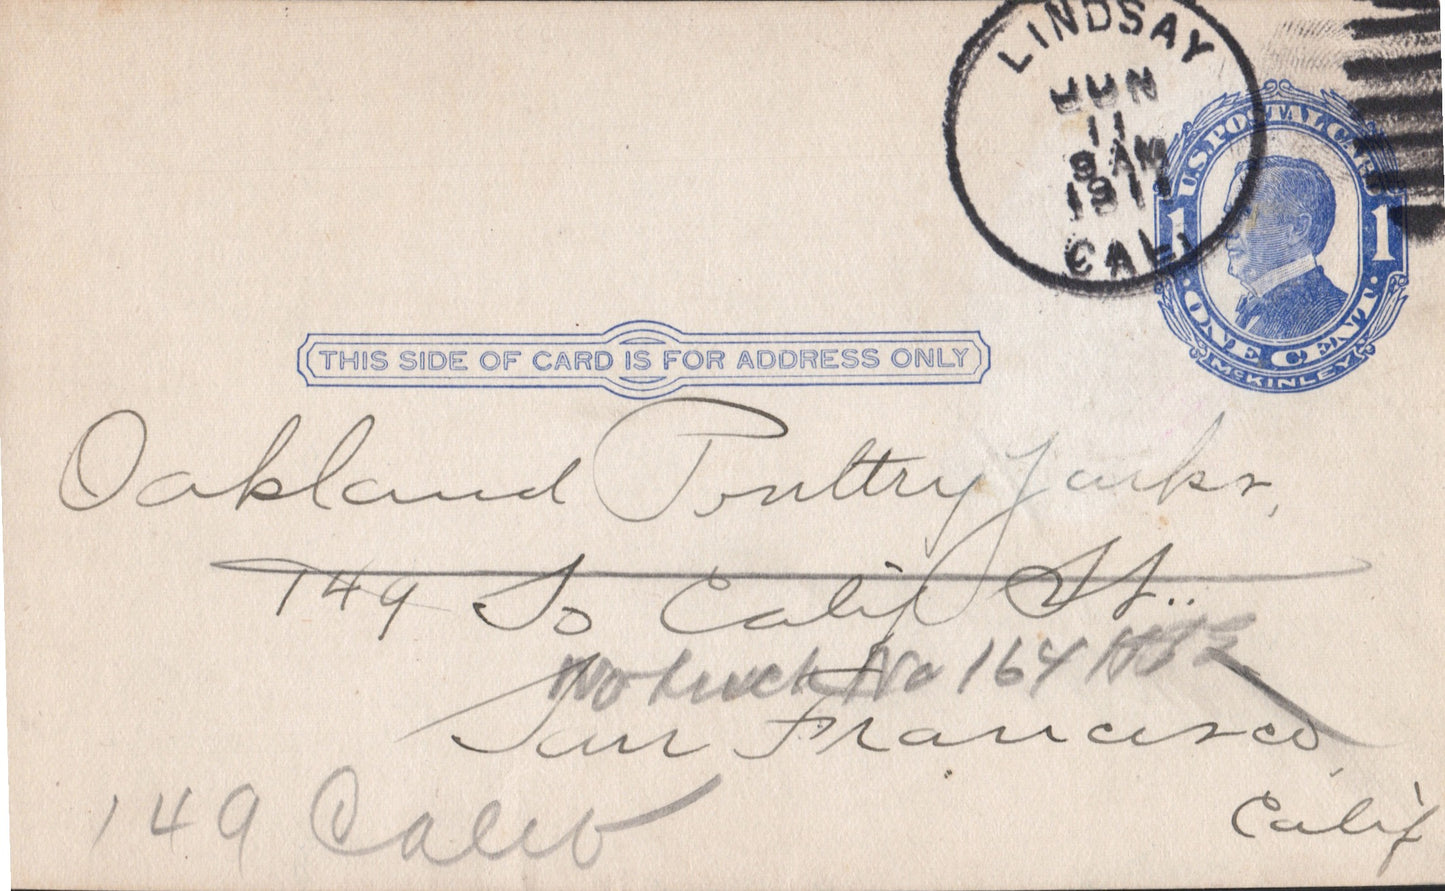 LINDSAY
JUN
11
9 AM
1911
CAL.
U.S. POSTAL CARD
1 1
·ONE CENT·
McKINLEY
THIS SIDE OF CARD IS FOR ADDRESS ONLY
Oakland Poultry Yards,
149 So Calif St..
No Such No 164
San Francisco,
Calif
149 Calif